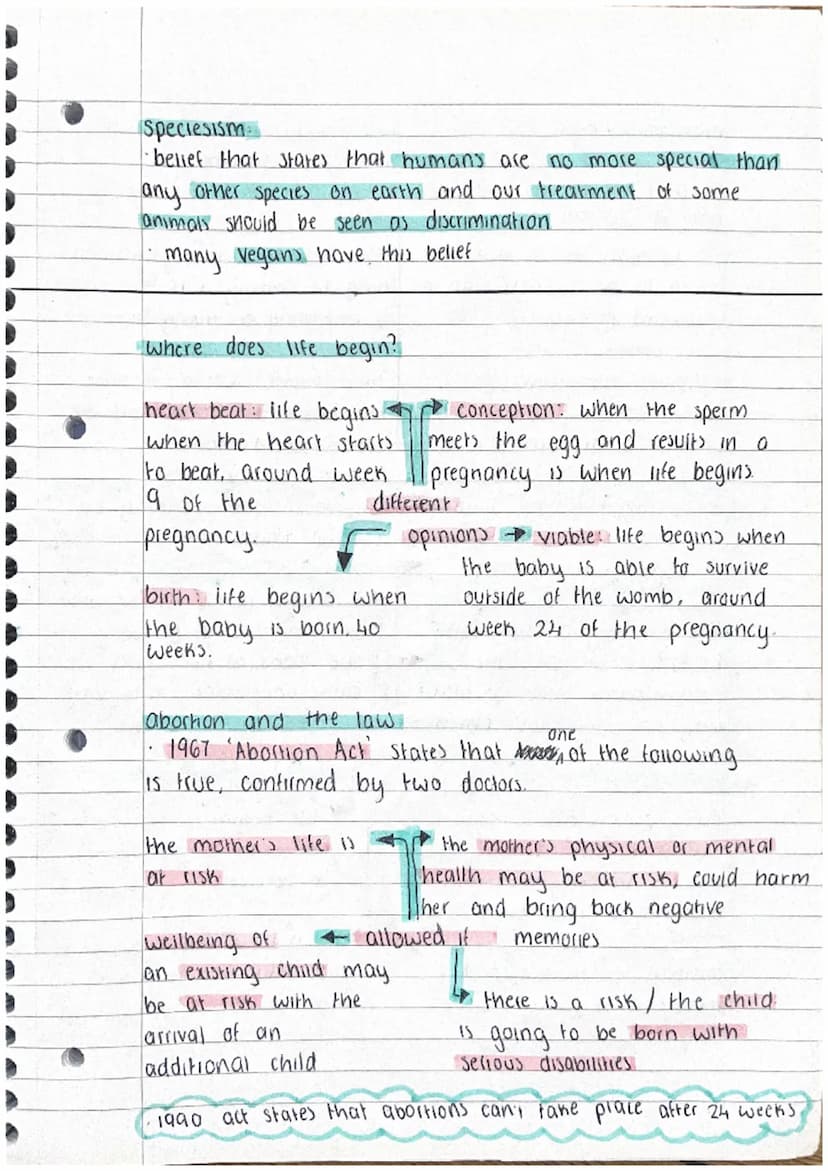 speciesism:
· belief that states that humans are no more special than
any other species on earth and our treatment of some
animals should be seen as discrimination
· many vegans have this belief
where does life begin?
heart beat: life begins
when the heart starts
to beat, around week
9 of the
pregnancy.
conception: when the sperm
meets the egg and results in a
pregnancy is when life begins.
different
opinions
viable: life begins when
the baby is able to survive
outside of the womb, around
week 24 of the pregnancy.
birth: life begins when
the baby is born, 40
weeks.
abortion and the law
· 1967 'Abortion Act' states that one of the following
is true, confirmed by two doctors.
the mother's life is
at risk
the mother's physical or mental
health may be at risk, could harm
her and bring back negative
memories
allowed if
wellbeing of
an existing child may
be at risk with the
arrival of an
additional child
there is a risk / the child
is going to be born with
serious disabilities
· 1990 act states that abortions can't take place after 24 weeks